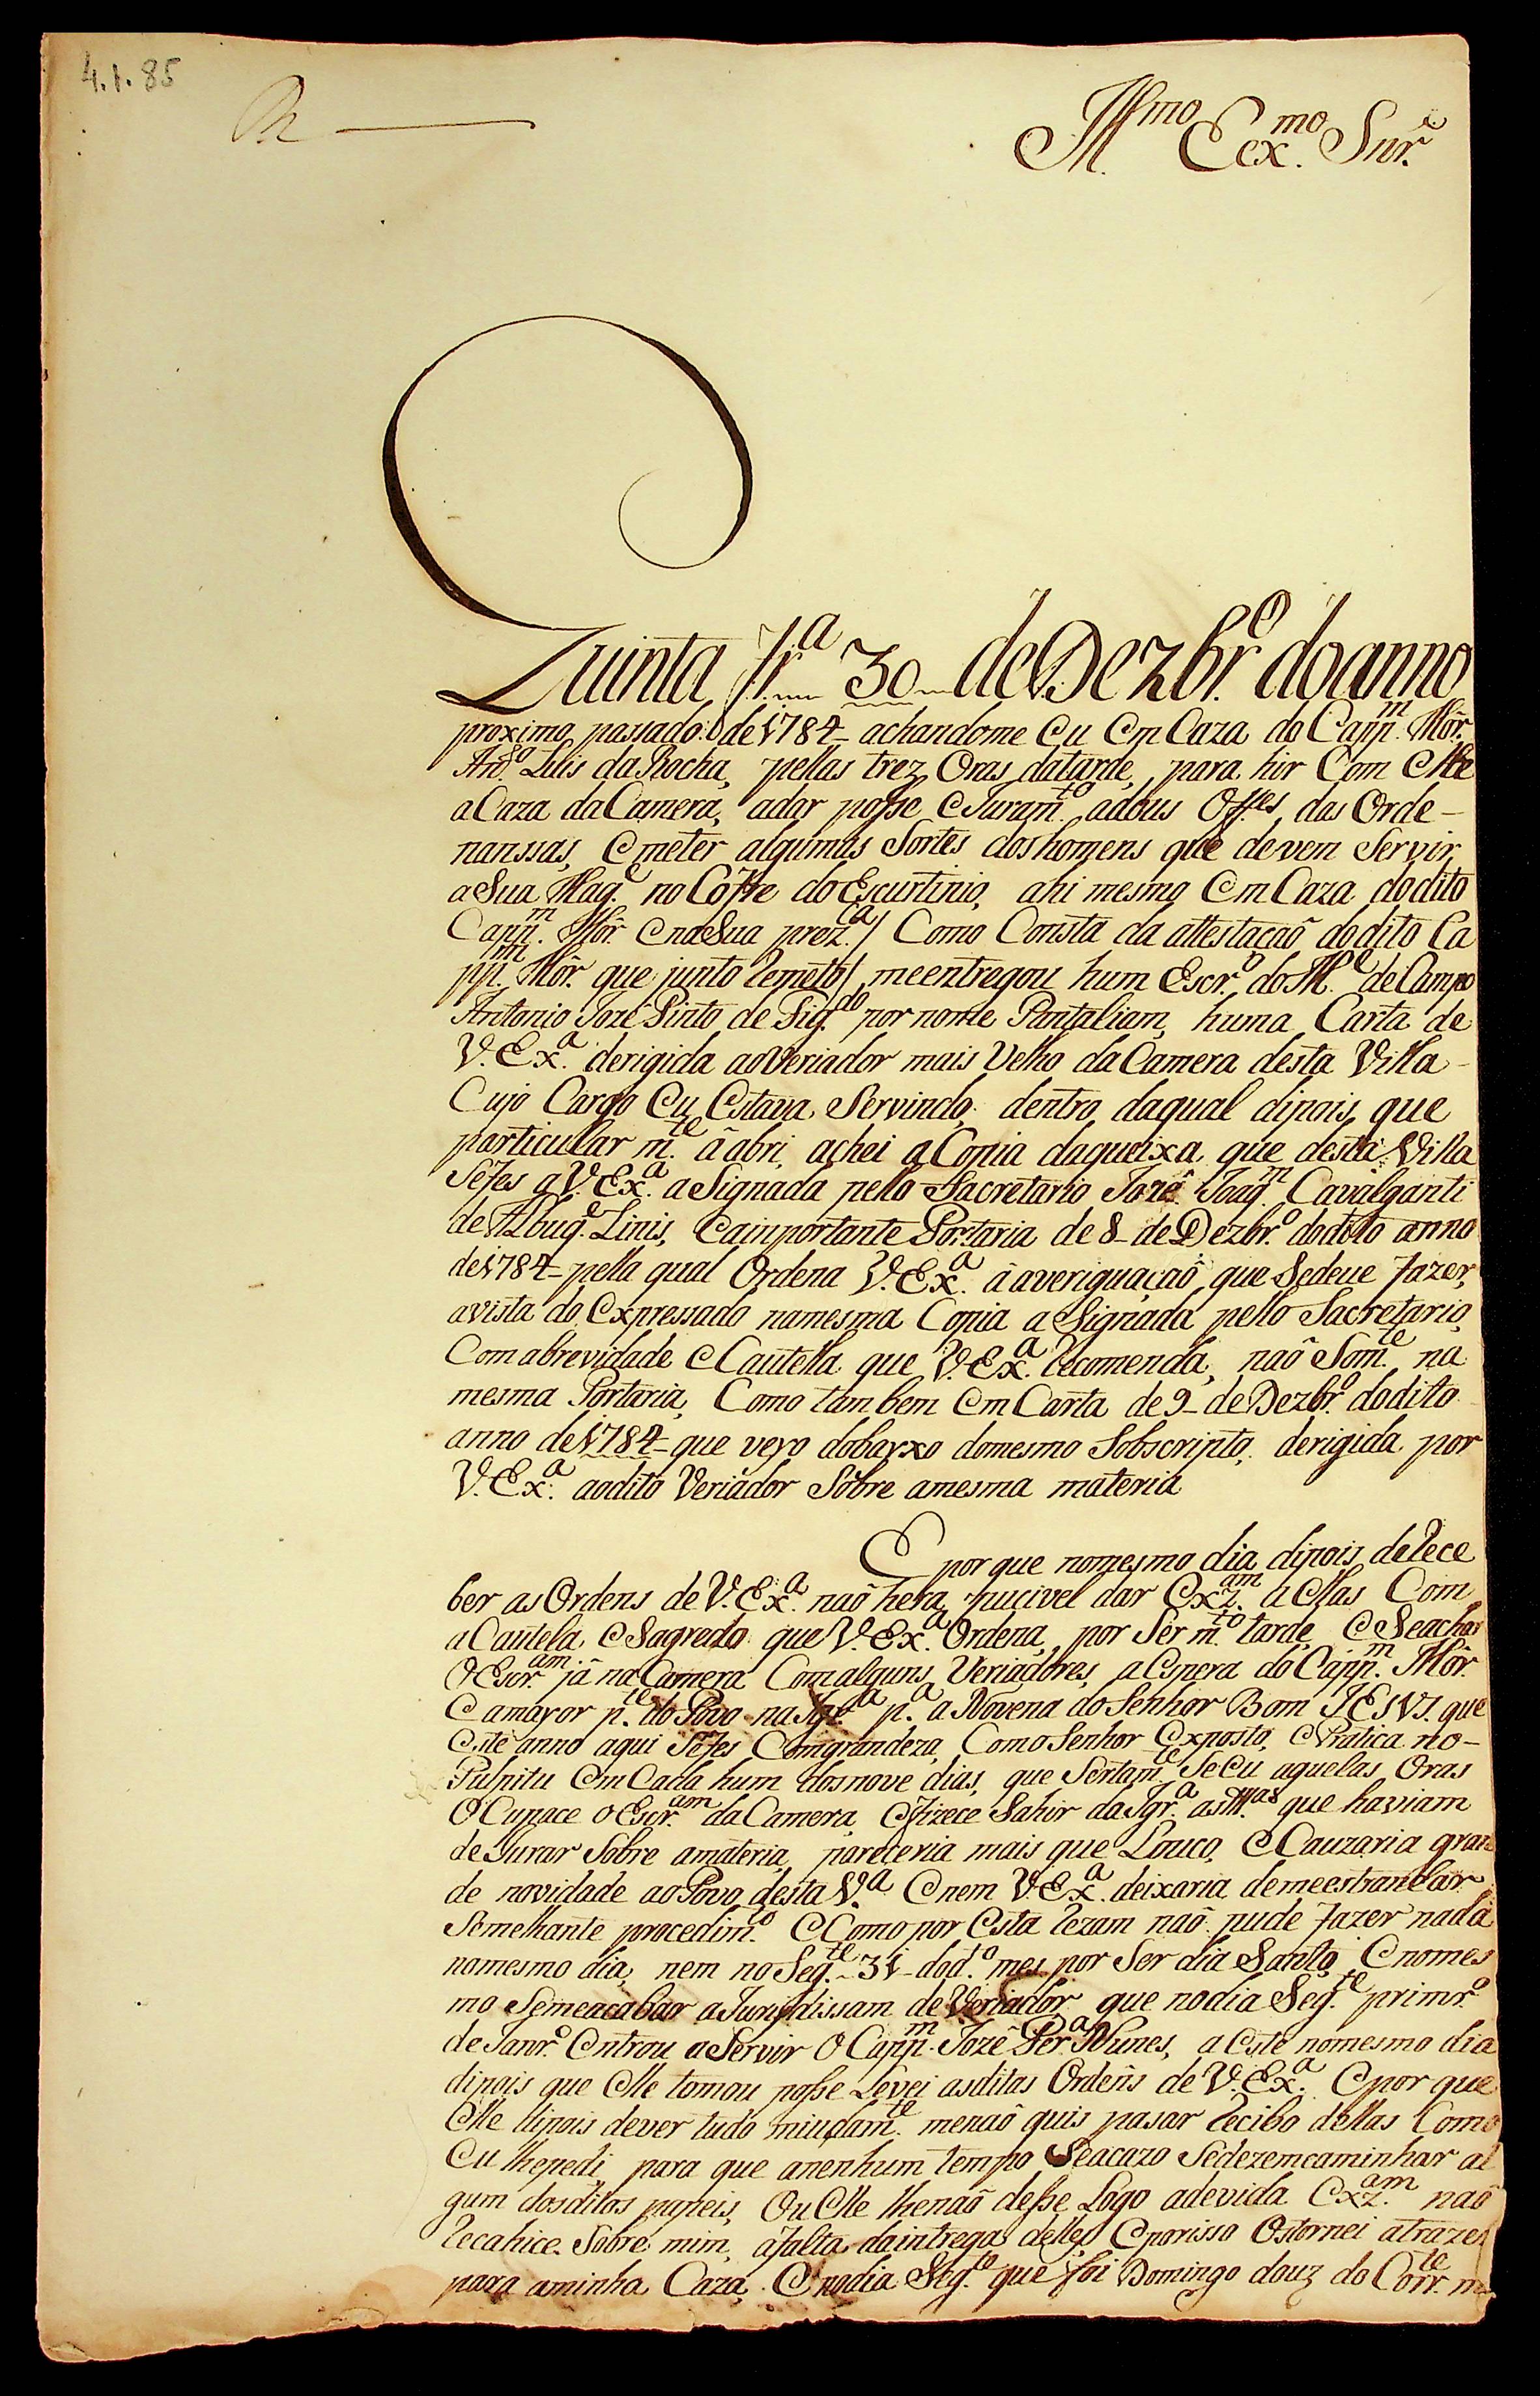 4.1.85
Ill.mo Eex.mo Snr.e
Quinta fr.a 30 de Dezbr.o do anno
proximo passado de 1784 achandome eu em Caza do Capp.m Mór.
An.to Luis da Rocha, pellas trez Oras datarde, para hir Com elle
a Caza da Camera, adar posse eJuram.to adous Off.es das Orde-
nanssas, emeter algumas Sortes doshomens que devem Servir
aSua Mag.e no Cofre do Escurtinio, ahi mesmo em Caza dodito
Capp.m Mór. enaSua prez.ca / Como Consta da attestaçaõ dodito Ca
pp.m Mór. que junto Remeto /, meentregou hum Escr.o do M.e de Campo
Antonio Jozé Pinto de Fig.do por nome Pantaliam, huma Carta de
V. Ex.a derigida aoVeriador mais Velho da Camera desta Villa
Cujo Cargo eu estava Servindo, dentro daqual dipois que
particular m.te â abri, achei a Copia daqueixa que desta Villa
Sefes a V. Ex.a aSignada pello Sacretario Jozê Joaq.m Cavalganti
de Albuq.e Linis, eaimportante Portaria de 8 de Dezbr.o dodito anno
de1784 pella qual Ordena V. Ex.a â averiguaçaõ que Sedeue fazer,
avista do expressado namesma Copia aSignada pello Sacretario,
Comabrevidade eCautella que V. Ex.a Recomenda, naõ Som.te na
mesma Portaria, Como tambem em Carta de 9 de Dezbr.o dodito
anno de1784 que veyo dobayxo domesmo Sobscripto, derigida por
V. Ex.a aodito Veriador Sobre amesma materia
E por que nomesmo dia dipois deRece
ber as Ordens de V. Ex.a naõ hera pucivel dar exz.am a ellas Com
aCautela eSagredo que V. Ex.a Ordena, por Ser m.to tarde, eSeachar
OEscr.am já na Camera Comalguns Veriadores, aespera do Capp.m Môr.
eamayor p.te do Povo na Igr.a p.a a Novena do Senhor Bom JESVS. que
este anno aqui Sefes Comgrandeza, Como Senhor exposto, ePratica no-
Pulpitu em Cada hum dosnove dias, que Sertam.te Seeu aquelas Oras
OCupace oEscr.am da Camera, efizece Sahir da Igr.a asM.as que haviam
deJurar Sobre amateria, pareceria mais que Louco, eCauzaria gran
de novidade aoPovo desta V.a enem V. Ex.a deixaria demeestranhar
Semelhante procedim.to eComo por esta Rezam naõ pude fazer nada
nomesmo dia, nem no Seg.te 31 dod.o mes por Ser dia Santo, enomes
mo Semeacabar aJurisdissam de Veriador que nodia Seg.te primr.o
de Janr.o entrou aServir OCapp.m Jozê Per.a Nunes, aeste nomesmo dia
dipois que elle tomou posse Levei asditas Ordeñs de V. Ex.a epor que
elle dipois dever tudo miudam.te menaõ quis pasar Recibo dellas Como
eu lhepedi para que anenhum tempo Seacazo Sedezemcaminhar al
gum dosditos papeis, Ou elle lhenaõ desse Logo adevida exz.am naõ
Recahice Sobre mim, afalta daintrega delles, eporisso Ostornei atrazer
para aminha Caza. E nodia Seg.te que foi Domingo douz do Corr.te